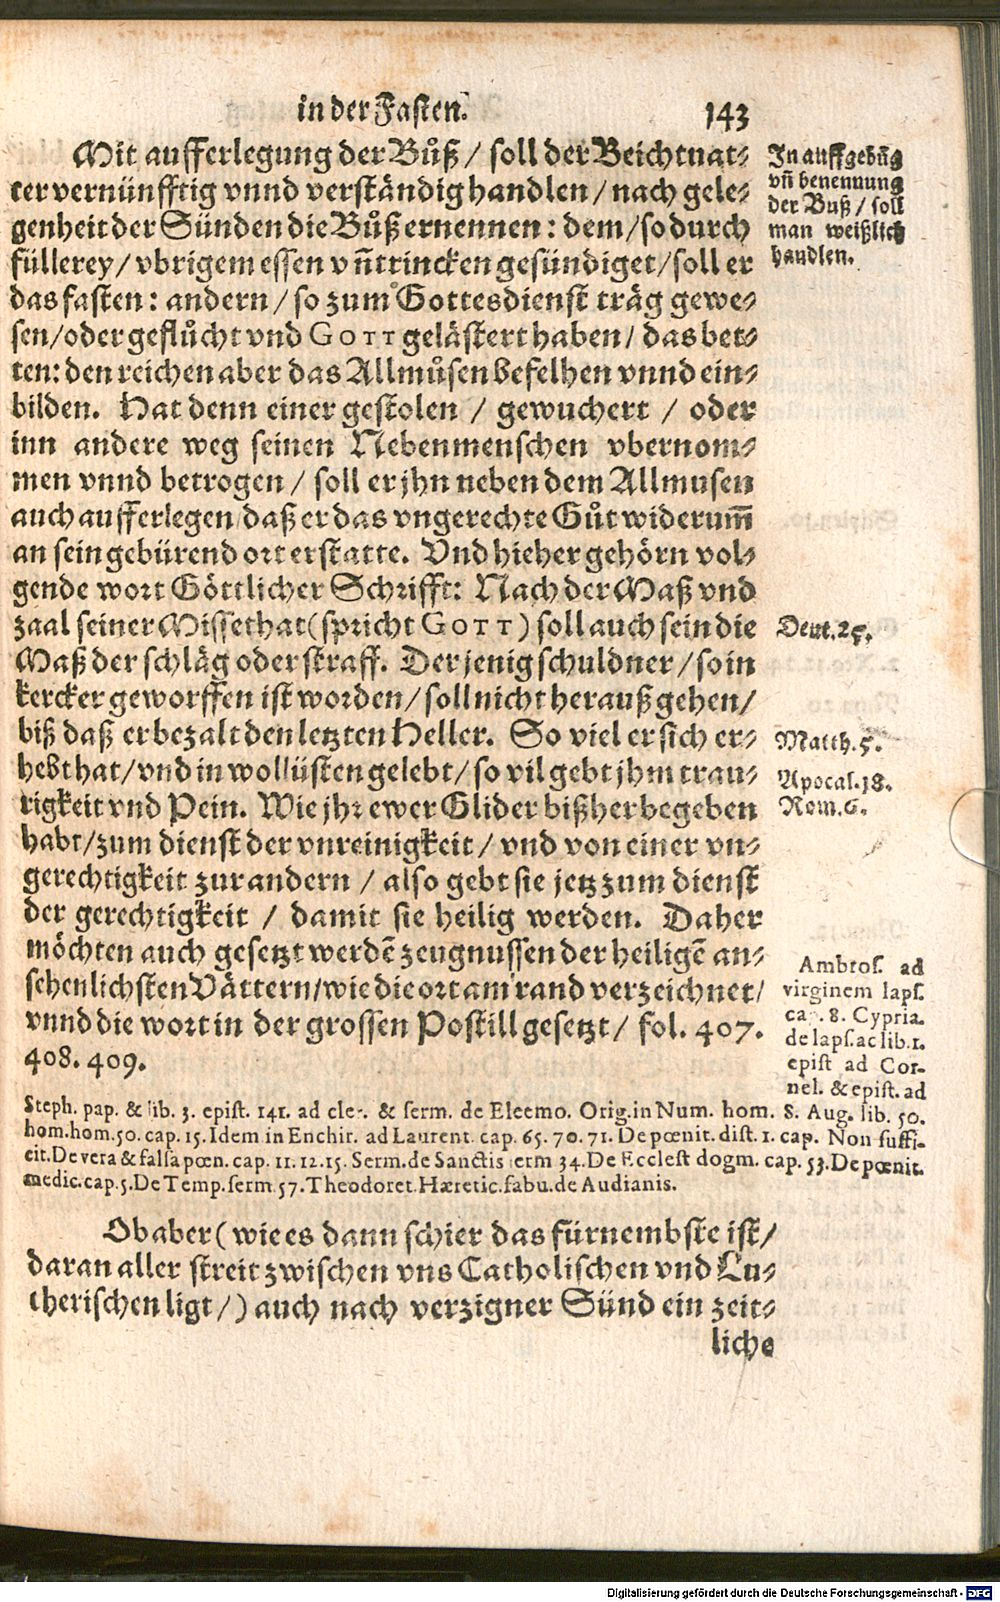 in der Fasten.
143
Mit aufferlegung der Bůß / soll der Beichtuat⸗
ter vernünfftig vnnd verständig handlen / nach gele⸗
genheit der Sünden die Bůß ernennen: dem / so durch
füllerey / vbrigem essen vñ trincken gesündiget / soll er
das fasten: andern / so zum Gottesdienst träg gewe⸗
sen / oder geflůcht vnd GOTT gelästert haben / das bet⸗
ten: den reichen aber das Allmůsen befelhen vnnd ein⸗
bilden. Hat denn einer gestolen / gewuchert / oder
inn andere weg seinen Nebenmenschen vbernom⸗
men vnnd betrogen / soll er jhn neben dem Allmusen
auch aufferlegen / daß er das vngerechte Gůt widerum̃
an sein gebürend ort erstatte. Vnd hieher gehörn vol⸗
gende wort Göttlicher Schrifft: Nach der Maß vnd
zaal seiner Missethat (spricht GOTT) soll auch sein die
Maß der schläg oder straff. Der jenig schuldner / so in
kercker geworffen ist worden / soll nicht herauß gehen /
biß daß er bezalt den letzten Heller. So viel er sich er⸗
hebt hat / vnd in wollüsten gelebt / so vil gebt jhm trau⸗
rigkeit vnd Pein. Wie jhr ewer Glider bißher begeben
habt / zum dienst der vnreinigkeit / vnd von einer vn⸗
gerechtigkeit zur andern / also gebt sie jetz zum dienst
der gerechtigkeit / damit sie heilig werden. Daher
möchten auch gesetzt werdẽ zeugnussen der heiligẽ an⸗
sehenlichsten Vättern / wie die ort am rand verzeichnet /
vnnd die wort in der grossen Postill gesetzt / fol. 407.
408. 409.
In auffgebũg
vñ benennung
der Buß / soll
man weißlich
handlen.
Deut. 25.
Matth. 5.
Apocal. 18.
Rom. 6.
Ambros. ad
virginem laps.
cap. 8. Cypria.
de laps. ac lib. 1.
epist ad Cor-
nel. & epist. ad
Steph. pap. & lib. 3. epist. 141. ad cler. & serm. de Eleemo. Orig. in Num. hom. 8. Aug. lib. 50.
hom. hom. 50. cap. 15. Idem in Enchir. ad Laurent. cap. 65. 70. 71. De pœnit. dist. 1. cap. Non suffi-
cit. De vera & falsa pœn. cap. 11. 12. 15. Serm. de Sanctis serm 34. De Ecclest dogm. cap. 53. De pœnit.
medic. cap. 5. De Temp. serm. 57. Theodoret. Hæretic. fabu. de Audianis.
Ob aber (wie es dann schier das fürnembste ist /
daran aller streit zwischen vns Catholischen vnd Lu⸗
therischen ligt /) auch nach verzigner Sünd ein zeit⸗
liche
Digitalisierung gefördert durch die Deutsche Forschungsgemeinschaft - DFG